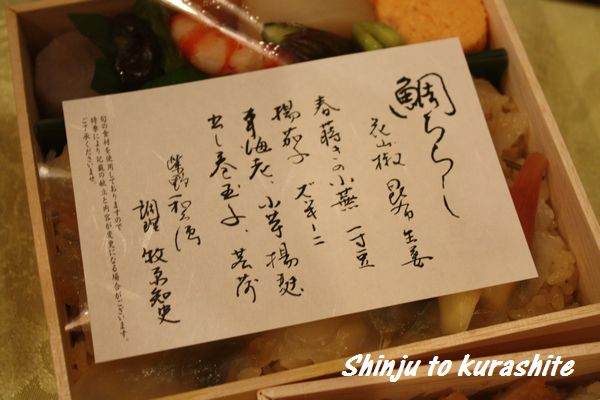 鯛ちらし
花山椒 昆布 生姜
春蒔きの小蕪 一寸豆
揚茄子 ズッキーニ
車海老、小芋揚煮
出し巻玉子、茗荷
紫野 和久傳
調理 牧京知史
旬の食材を使用しておりますので
時季により記載の献立と内容が変更になる場合がございます。
ご了承くださいませ。
Shinju to kurashite